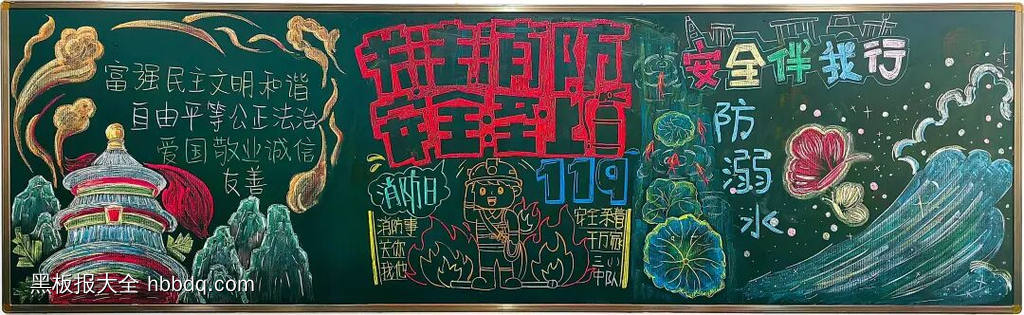 富强民主文明和谐
自由平等公正法治
爱国敬业诚信
友善
进消防
安全至上
119
消防日
消防重
关你
我他
安全系着
千万
中队
安全伴我行
防溺水
黑板报大全 hbbdq.com